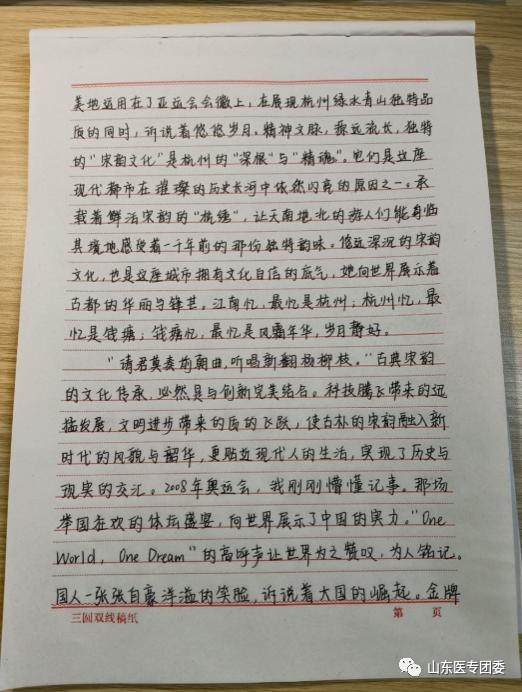 美地运用在了亚运会会徽上，在展现杭州绿水青山独特品
质的同时，诉说着悠悠岁月。精神文脉，源远流长，独特
的“宋韵文化”是杭州的“深根”与“精魂”。它们是这座
现代都市在璀璨的历史长河中依然闪亮的原因之一。承
载着鲜活宋韵的“杭绣”，让天南地北的游人们能身临
其境地感受着一千年前的那份独特韵味。悠远深沉的宋韵
文化，也是这座城市拥有文化自信的底气，她向世界展示着
古都的华丽与锋芒。江南忆，最忆是杭州；杭州忆，最
忆是钱塘；钱塘忆，最忆是风霜年华，岁月静好。
“请君莫奏前朝曲，听唱新翻杨柳枝。”古典宋韵
的文化传承，必然是与创新完美结合。科技腾飞带来的迅
猛发展，文明进步带来的质的飞跃，使古朴的宋韵融入新
时代的风貌与韶华，更贴近现代人的生活，实现了历史与
现实的交汇。2008年奥运会，我刚刚懵懂记事。那场
举国狂欢的体坛盛宴，向世界展示了中国的实力。“One
World，One Dream”的高呼声让世界为之赞叹，为人铭记。
国人一张张自豪洋溢的笑脸，诉说着大国的崛起。金牌
三圆双线稿纸 第 页
山东医专团委